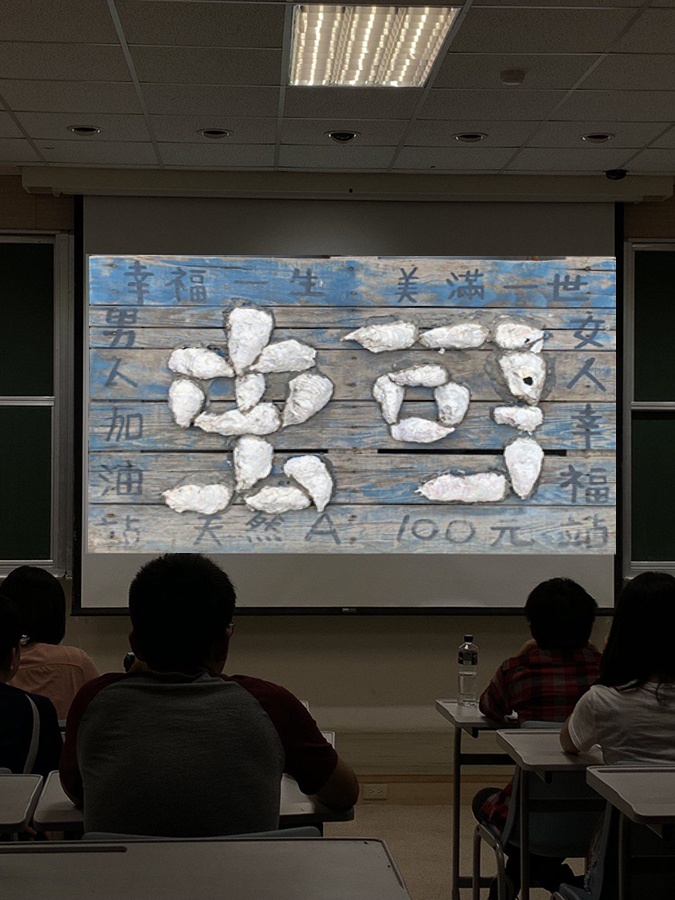 幸福一生 美滿一世
男人加油站
蚵
女人幸福站
天然A: 100元